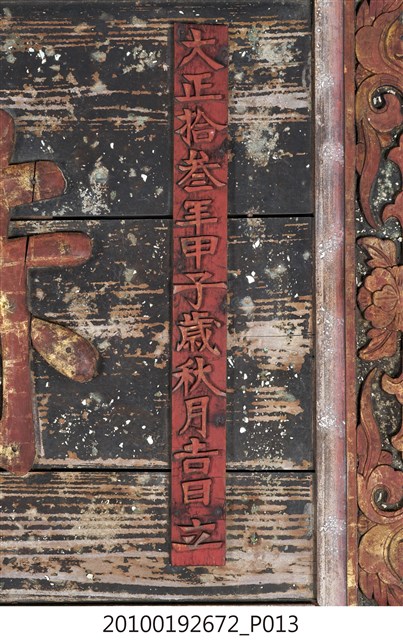 大正拾叁年甲子歳秋月吉日立
20100192672_P013